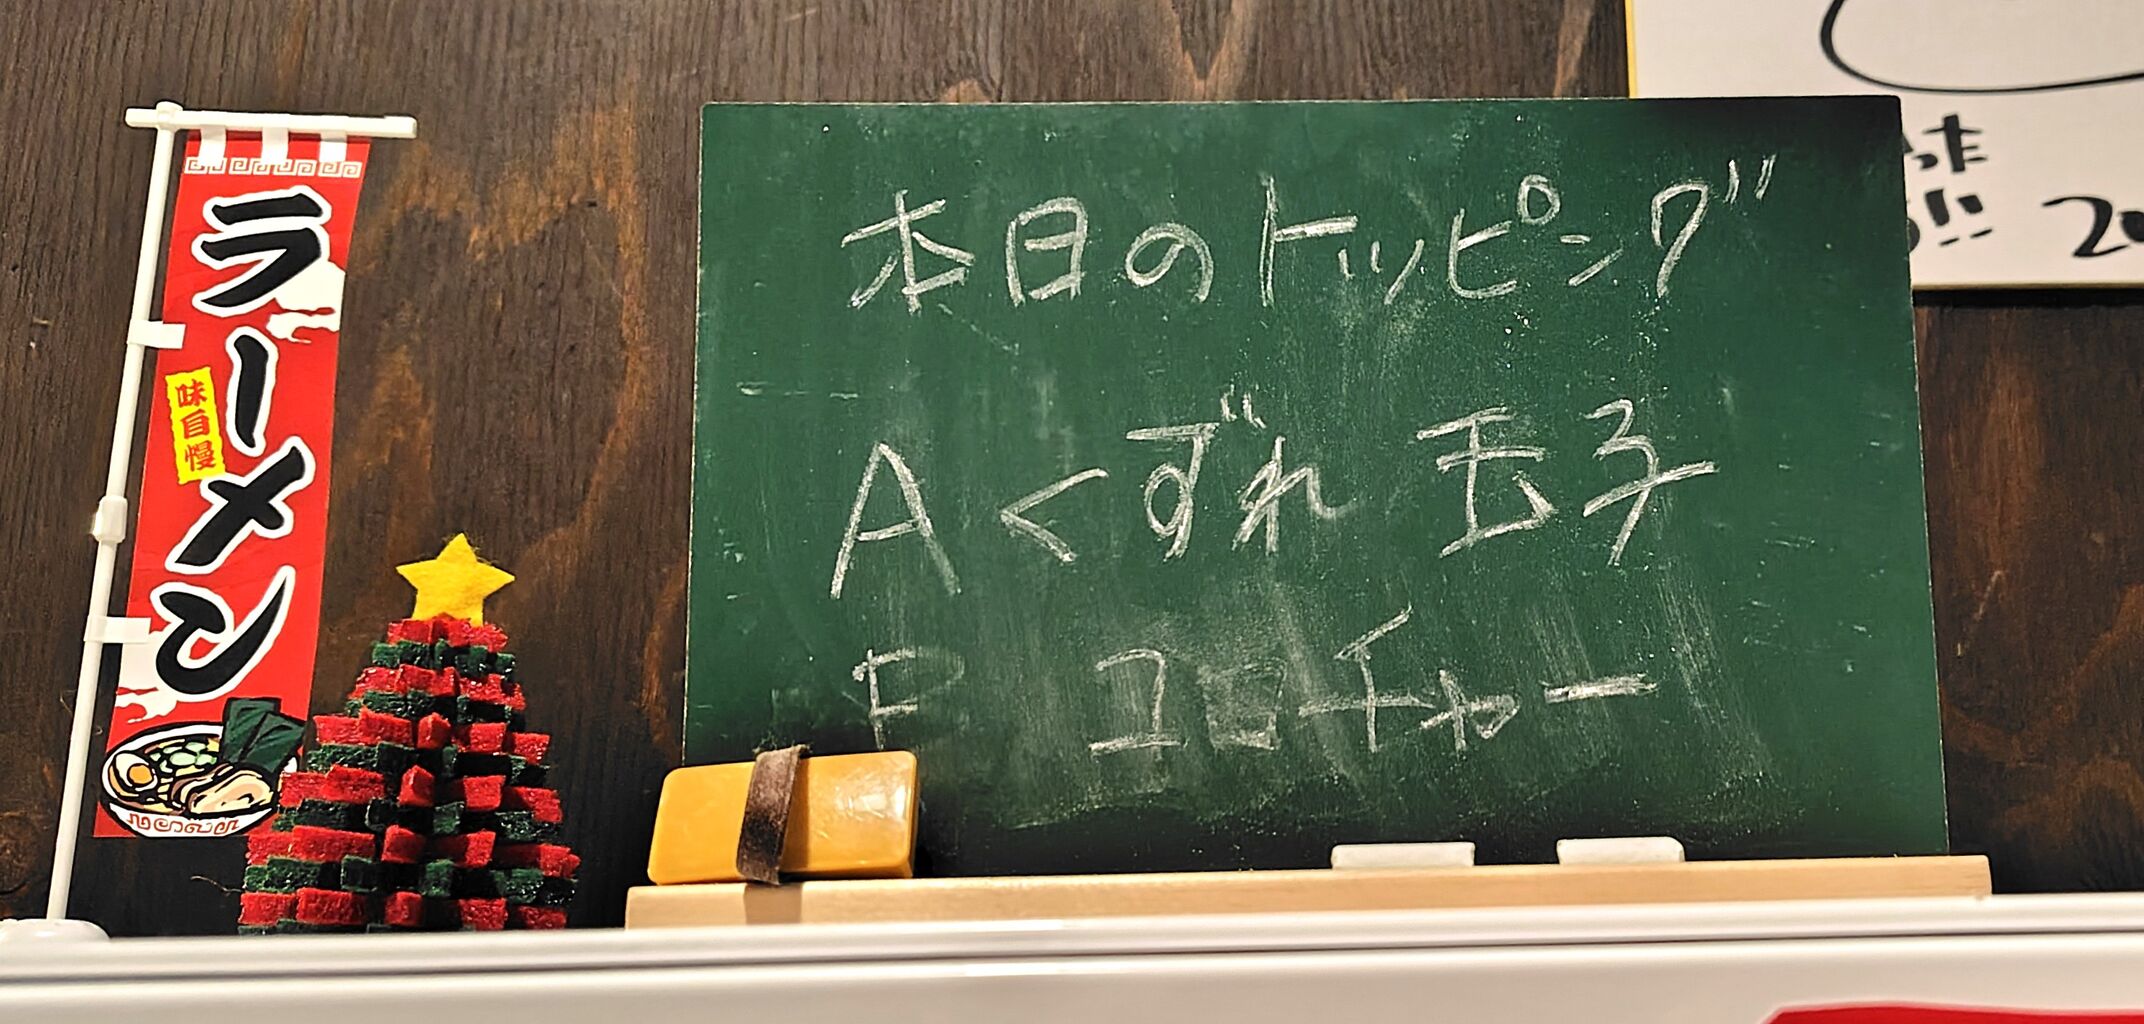 ラーメン
味自慢
本日のトッピング
A くずれ玉子
F コロチャー